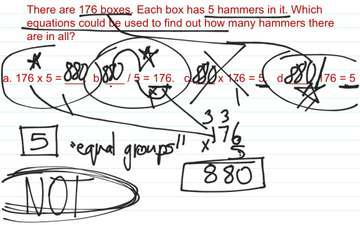 There are 176 boxes. Each box has 5 hammers in it. Which
equations could be used to find out how many hammers there
are in all?
a. 176 x 5 = 880 b) 880 / 5 = 176. c. 880 x 176 = 5. d. 880/176 = 5
3 3
176
5 "equal groups" x 5
880
NOT